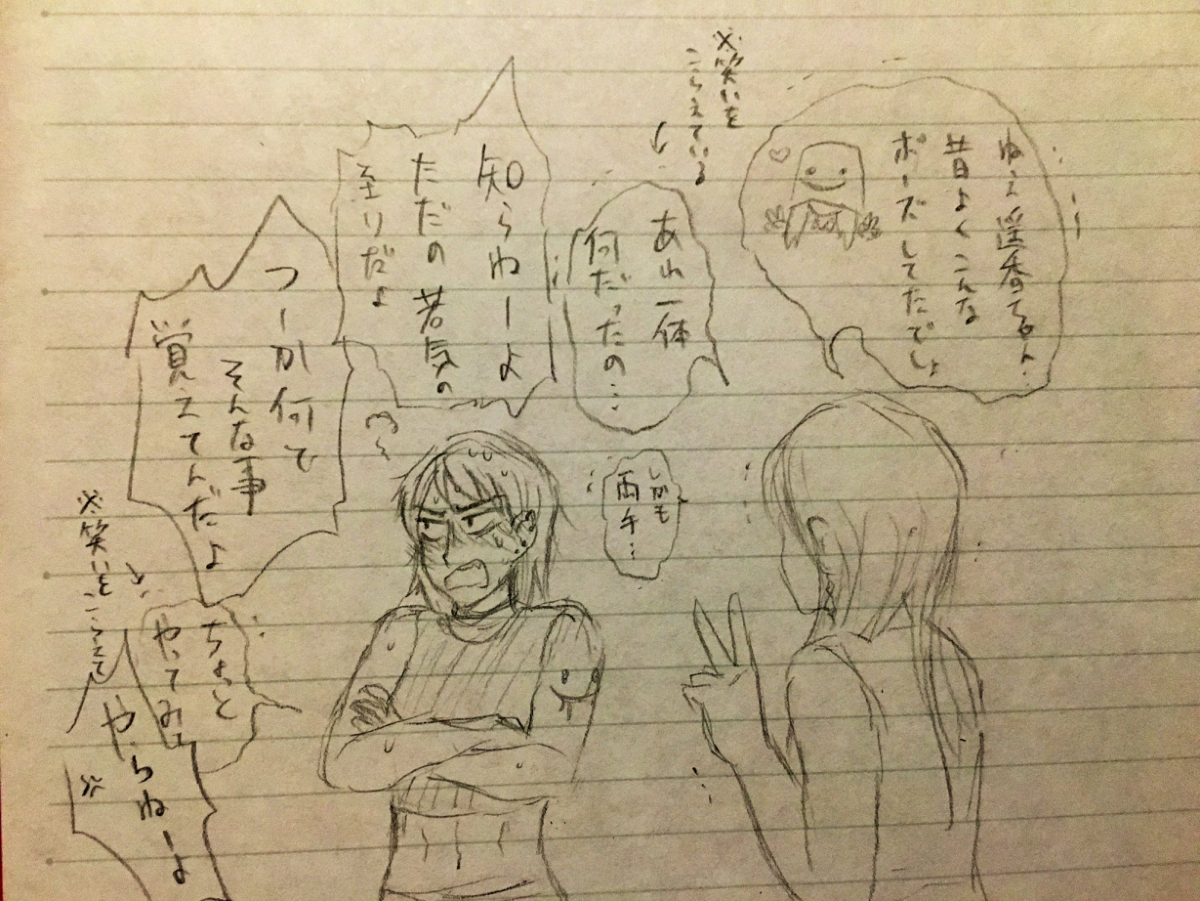 ねえ遥香ちゃん…
昔よくこんな
ポーズしてたでしょ
※笑いを
こらえている
あれ一体
何だったの…
しかも
両手…
知らねーよ
ただの若気の
至りだよ
つーか何で
そんな事
覚えてんだよ
※笑いをこらえて
ちょっと
やってみ
やらねーよ